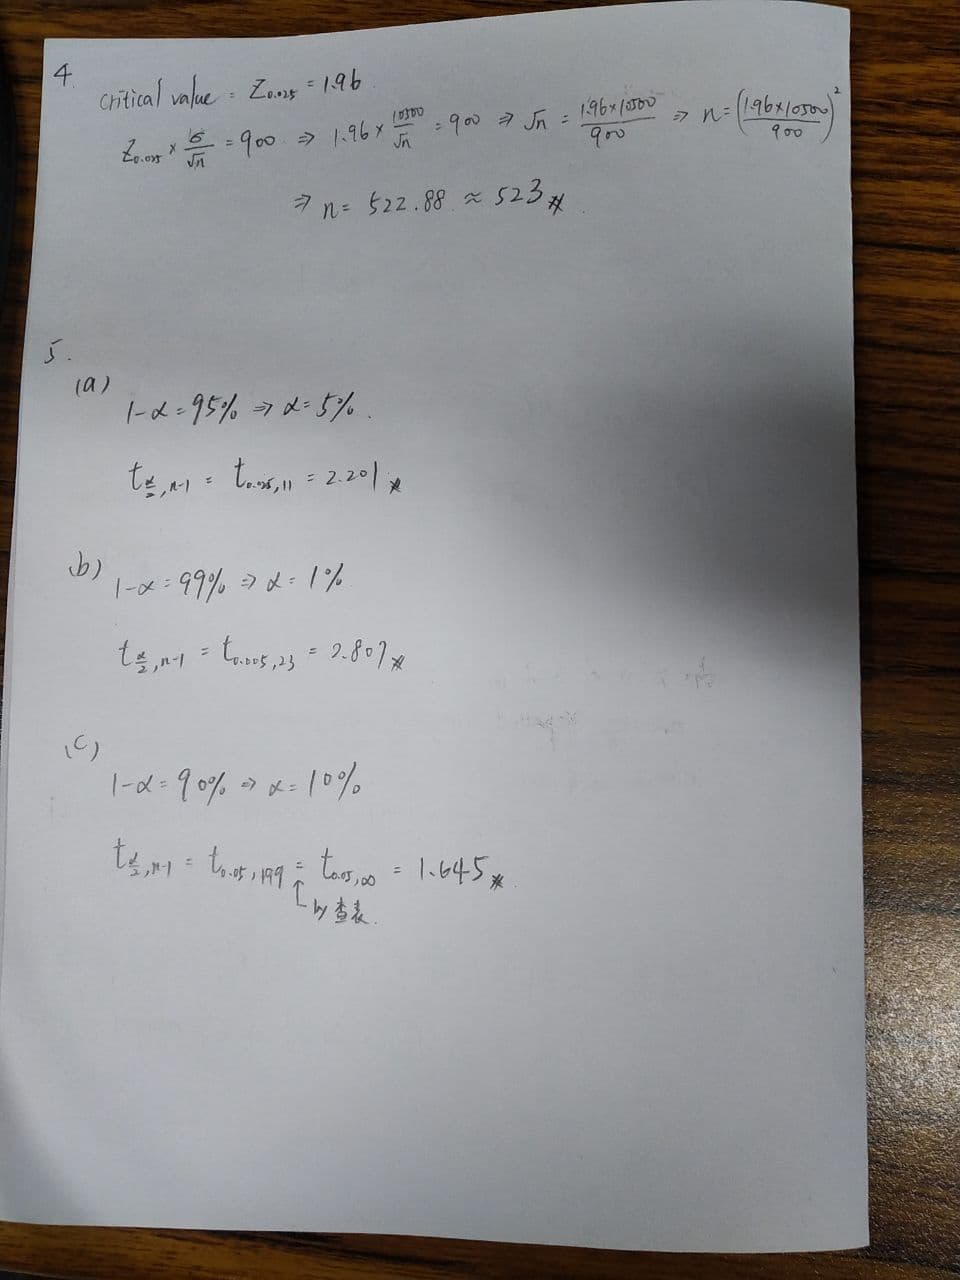 4.
critical value = Z0.025 = 1.96
Z0.025 × σ/√n = 900 ⇒ 1.96 × 10500/√n = 900 ⇒ √n = 1.96×10500/900 ⇒ n = (1.96×10500/900)²
⇒ n = 522.88 ≈ 523 #
5.
(a)
1-α = 95% ⇒ α = 5%.
tα/2, n-1 = t0.025, 11 = 2.201 #
b)
1-α = 99% ⇒ α = 1%
tα/2, n-1 = t0.005, 23 = 2.807 #
(c)
1-α = 90% ⇒ α = 10%
tα/2, n-1 = t0.05, 199 = t0.05, ∞ = 1.645 #
↑ by 查表.